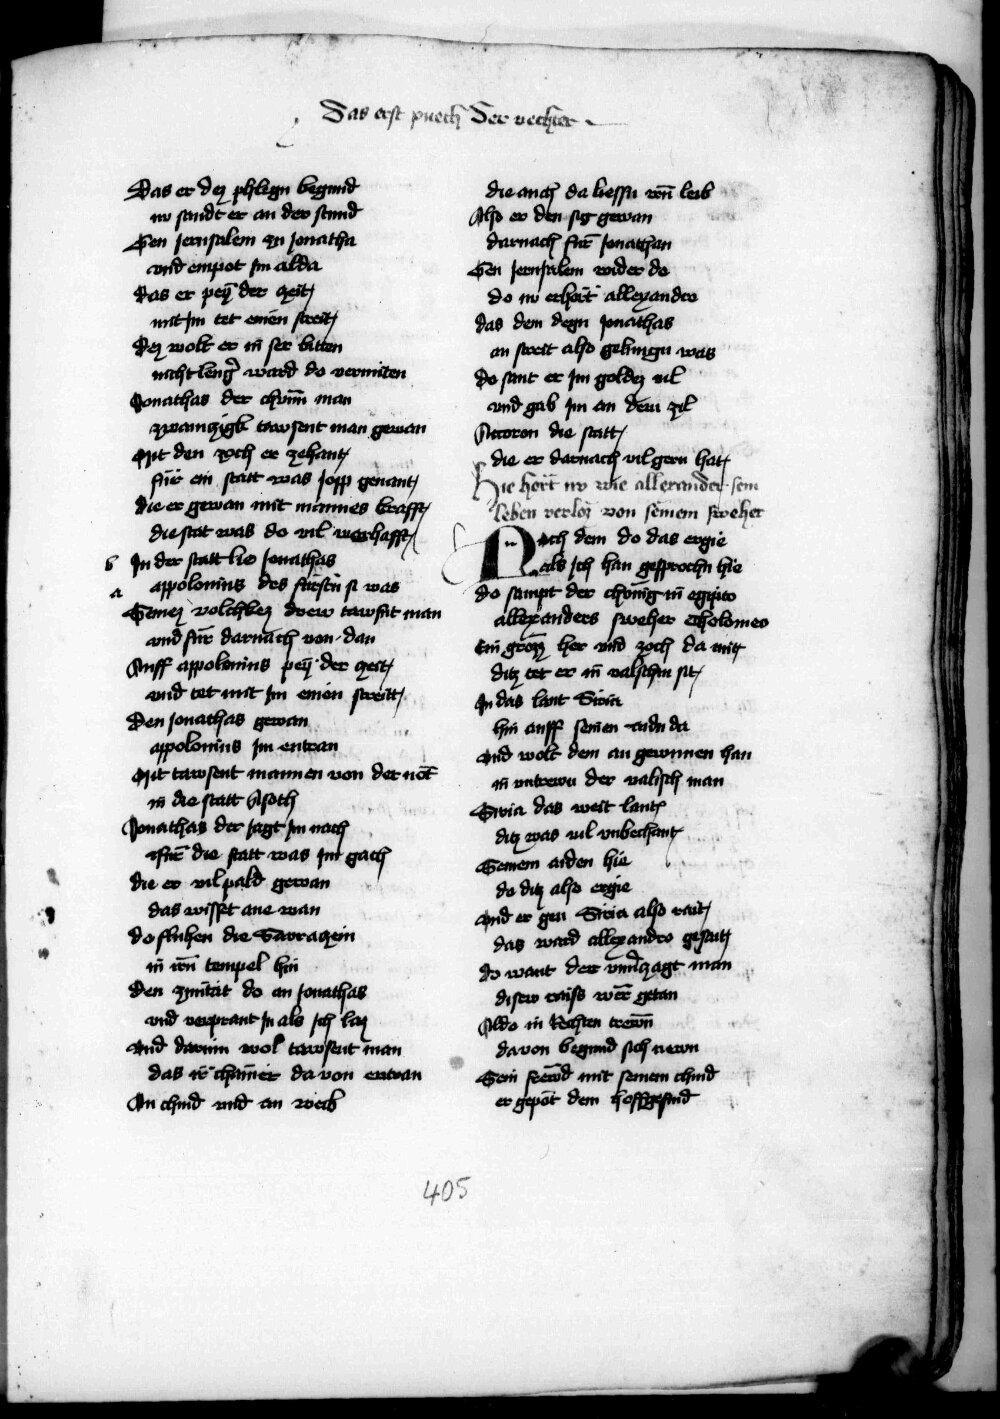 Das erst puech Der vechter
Das er dez phlegn begund
nu sandt er an der stund
Gen Jerusalem zu Jonatha
vnd empot Im alda
Das er peÿ der zeit
mit Im tet einen streit
Dez wolt er in ser bitten
nicht lenger ward do vermiten
Jonathas der chün man
zwainczigk tawsent man gewan
Mit den zoch er zehant
für ein statt was Jopp genant
die er gewan mit mannes krafft
die stat was do vil werhafft
b In der statt lie Jonathas
a appolonius des fürsten si was
Seinez volchkez drew tawsent man
vnd für darnach von dan
Auff appolonius peÿ der zeit
vnd tet mit Im einen streitt
Den Jonathas gewan
appolonius Im entran
Mit tawsent mannen von der not
in die statt Asoth
Jonathas der Jagt Im nach
für die statt was Im gach
die er vil pald gewan
das wisset ane wan
do fluhen die Sarraczein
in irn tempel hin
Den zunt do an Jonathas
vnd verprant In als Ich las
Vnd darinn wol tawsent man
das ir chainer da von entran
An chind vnd an weib
die auch da liessn irn leib
Also er den sig gewan
darnach für Jonathan
Gen Jerusalem wider do
do nu erhört allexandro
das dem degn Jonathas
an streit also gelungn was
Do sant er Im goldez vil
vnd gab Im an dem zil
Accoron die statt
die er darnach vil gern hat
Hie hört nu wie allexander sein
leben verlos von seinem sweher
Nach dem do das ergie
als Ich han gesprochn hie
do sampt der chünig in egipto
allexanders sweher Tholomeo
Ein gross her vnd zoch da mit
ditz tet er in valschm sit
In das lant Siria
hin auff seinen aidn da
Vnd wolt dem an gewinnen han
in vntrewn der valisch man
Siria das weit lant
ditz was vil vnbechant
Seinem aiden hie
do ditz also ergie
Vnd er gen Siria also rait
das ward allexandro geseit
do want der vnuerczagt man
disew raiss wer getan
Aldo in Rechten trewn
davon begund sich newn
Sein frewd mit seinem chind
er gepot dem hoffgesind
405